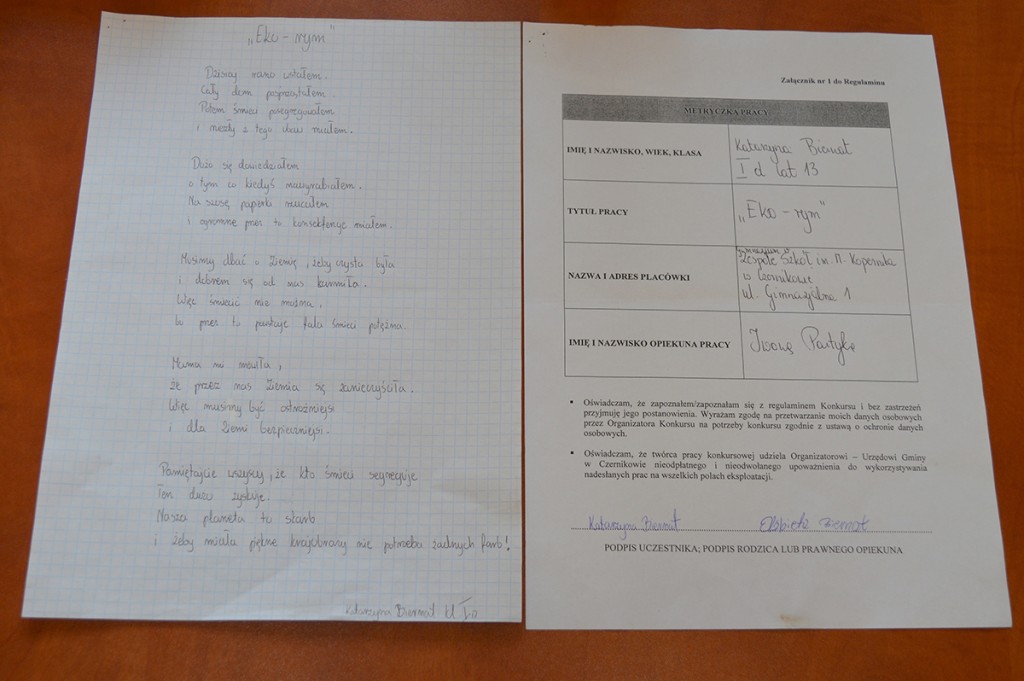 „Eko-rym"
Dzisiaj rano wstałem.
Cały dom posprzątałem.
Potem śmieci posegregowałem
i niezły z tego ubaw miałem.
Dużo się dowiedziałem
o tym co kiedyś nawyrabiałem.
Na szosę papierki rzucałem
i ogromne przez to konsekwencje miałem.
Musimy dbać o Ziemię, żeby czysta była
i dobrem się od nas karmiła.
Więc śmiecić nie można,
bo przez to panuje fala śmieci potężna.
Mama mi mówiła,
że przez nas Ziemia się zanieczyściła.
Więc musimy być ostrożniejsi
i dla Ziemi bezpieczniejsi.
Pamiętajcie wszyscy, że kto śmieci segreguje
Ten dużo zyskuje.
Nasza planeta to skarb
i żeby miała piękne krajobrazy nie potrzeba żadnych farb!
Katarzyna Biernat kl I d
Załącznik nr 1 do Regulaminu
METRYCZKA PRACY
IMIĘ I NAZWISKO, WIEK, KLASA
Katarzyna Biernat
I d lat 13
TYTUŁ PRACY
„Eko-rym"
NAZWA I ADRES PLACÓWKI
Gimnazjum w
Zespole Szkół im. M. Kopernika
w Czernikowie
ul. Gimnazjalna 1
IMIĘ I NAZWISKO OPIEKUNA PRACY
Iwona Partyka
• Oświadczam, że zapoznałem/zapoznałam się z regulaminem Konkursu i bez zastrzeżeń
przyjmuję jego postanowienia. Wyrażam zgodę na przetwarzanie moich danych osobowych
przez Organizatora Konkursu na potrzeby konkursu zgodnie z ustawą o ochronie danych
osobowych.
• Oświadczam, że twórca pracy konkursowej udziela Organizatorowi – Urzędowi Gminy
w Czernikowie nieodpłatnego i nieodwołanego upoważnienia do wykorzystywania
nadesłanych prac na wszelkich polach eksploatacji.
Katarzyna Biernat Elżbieta Biernat
PODPIS UCZESTNIKA; PODPIS RODZICA LUB PRAWNEGO OPIEKUNA